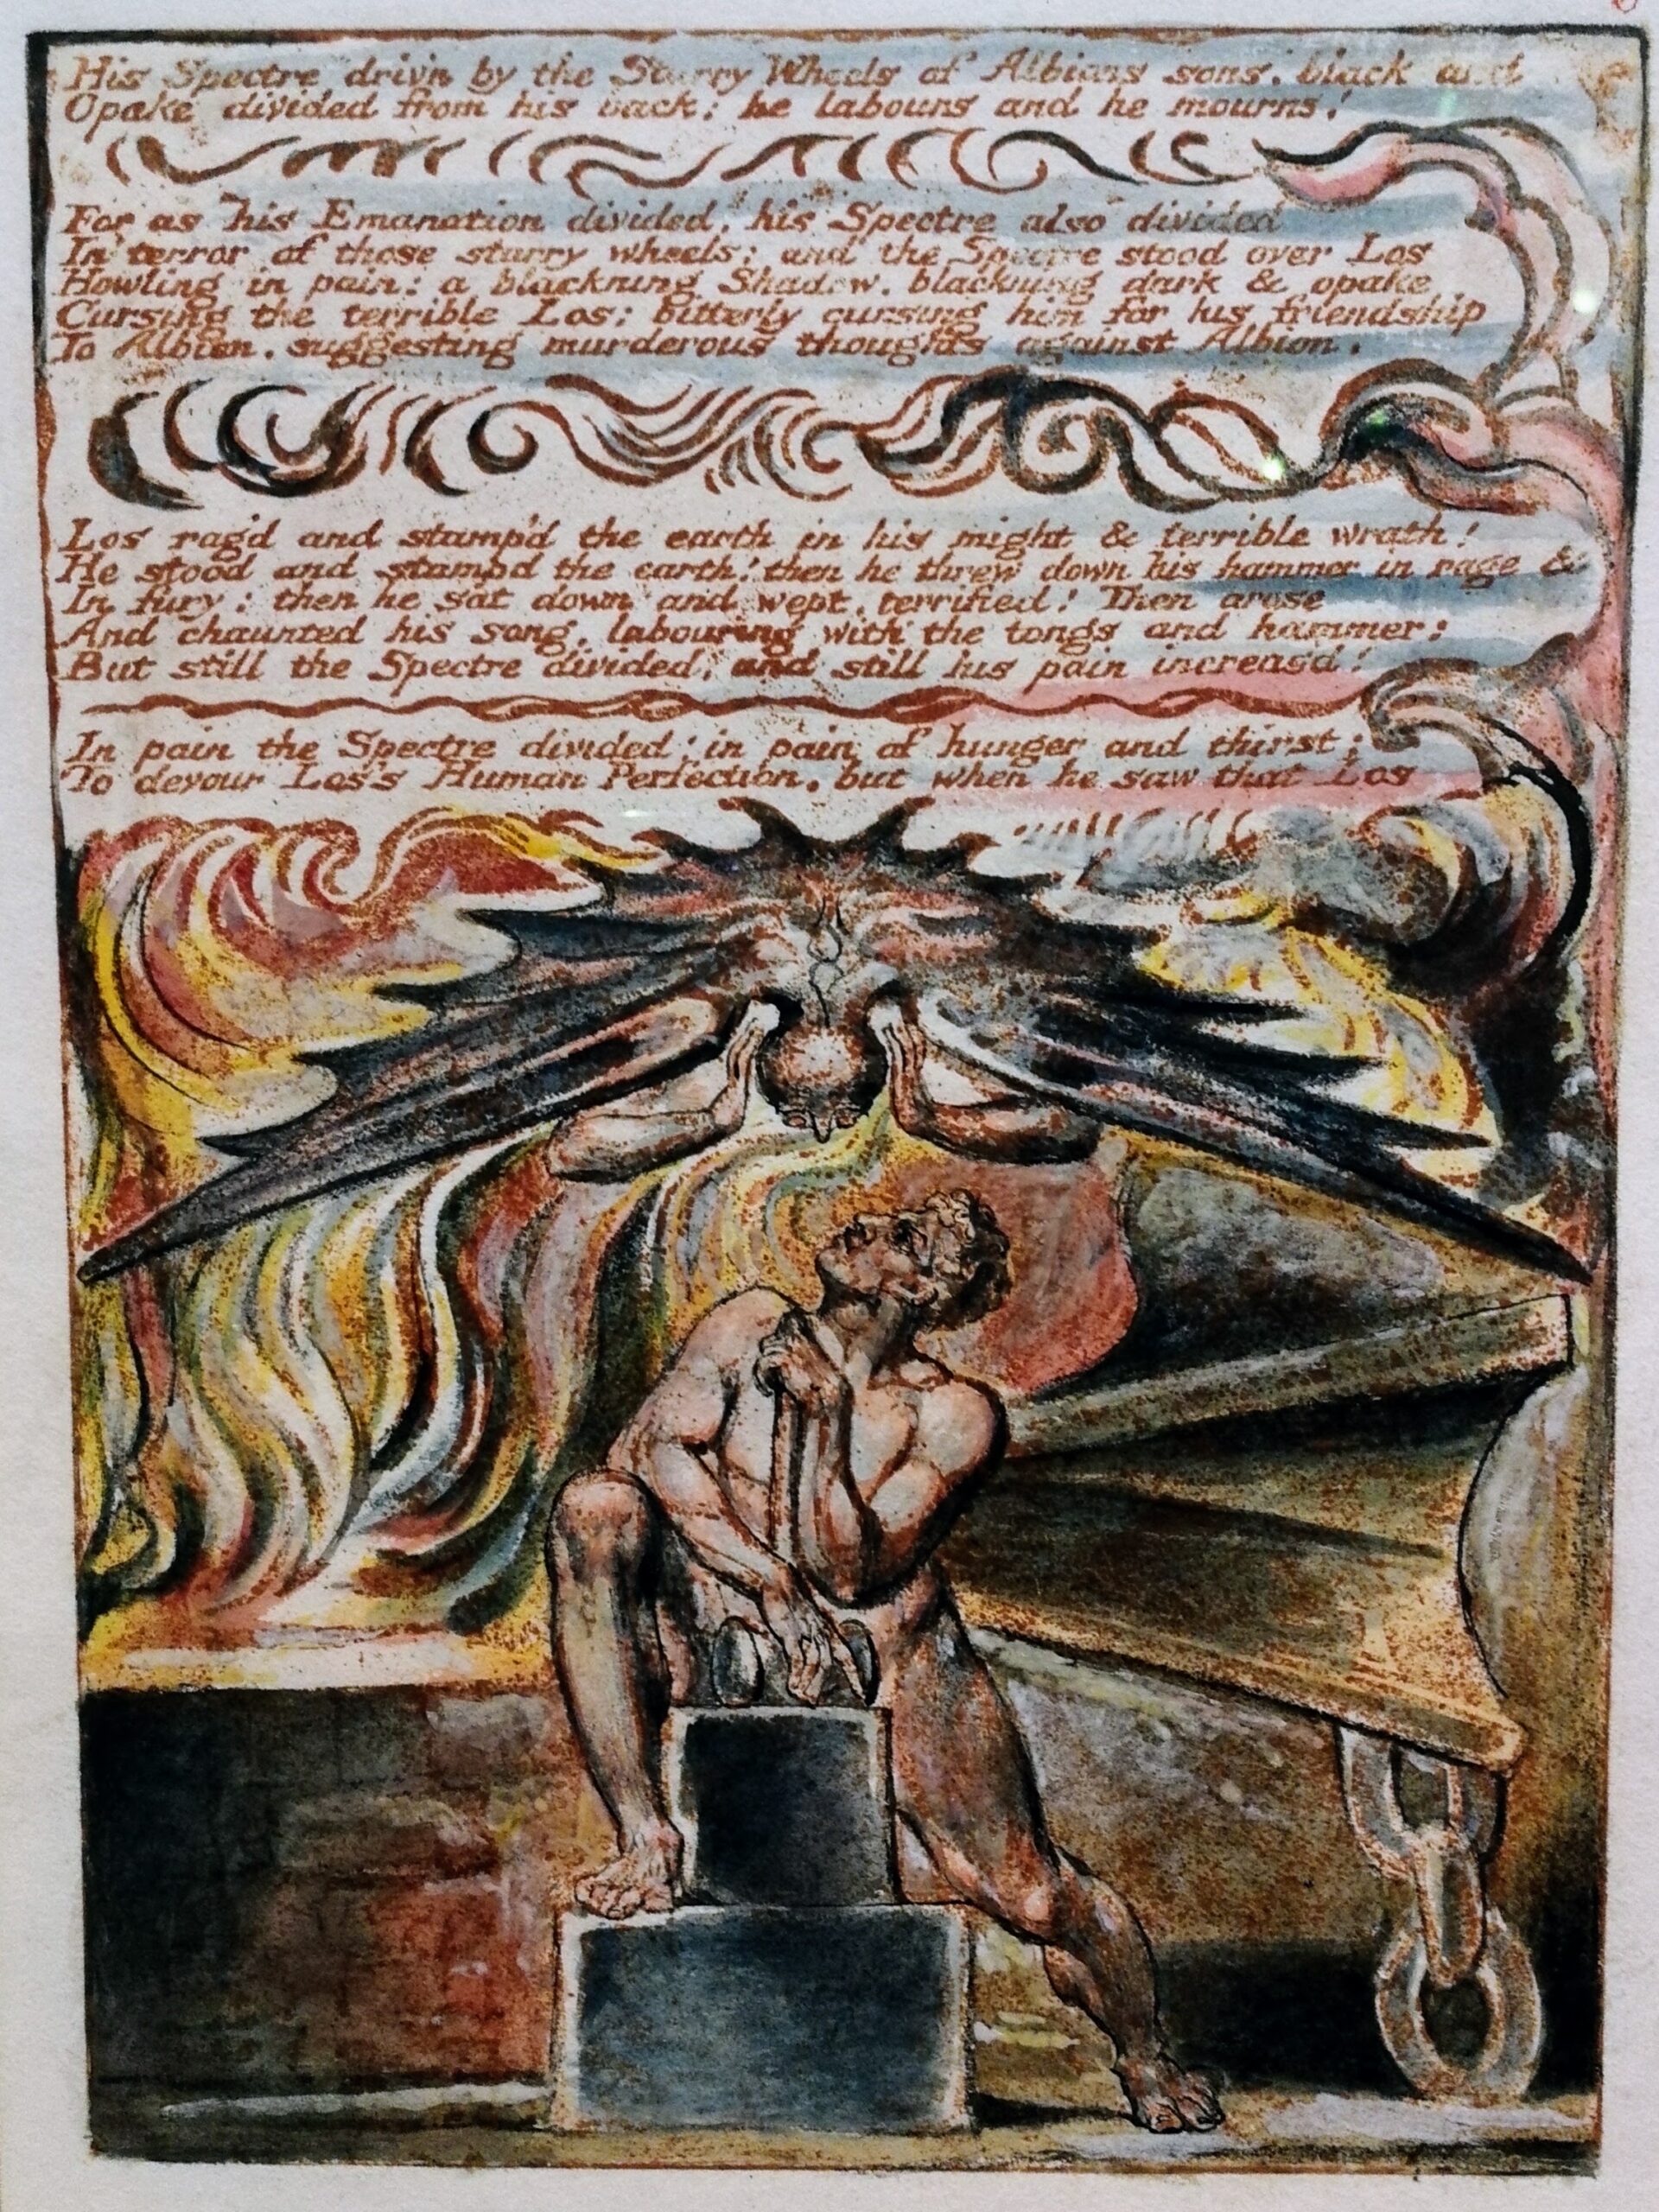 His Spectre driv'n by the Starry Wheels of Albions sons, black and
Opake divided from his back; he labours and he mourns!
For as his Emanation divided, his Spectre also divided
In terror of those starry wheels: and the Spectre stood over Los
Howling in pain: a blackning Shadow, blackning dark & opake
Cursing the terrible Los: bitterly cursing him for his friendship
To Albion, suggesting murderous thoughts against Albion.
Los rag'd and stamp'd the earth in his might & terrible wrath!
He stood and stampd the earth! then he threw down his hammer in rage &
In fury: then he sat down and wept, terrified! Then arose
And chaunted his song, labouring with the tongs and hammer:
But still the Spectre divided, and still his pain increas'd!
In pain the Spectre divided: in pain of hunger and thirst:
To devour Los's Human Perfection, but when he saw that Los